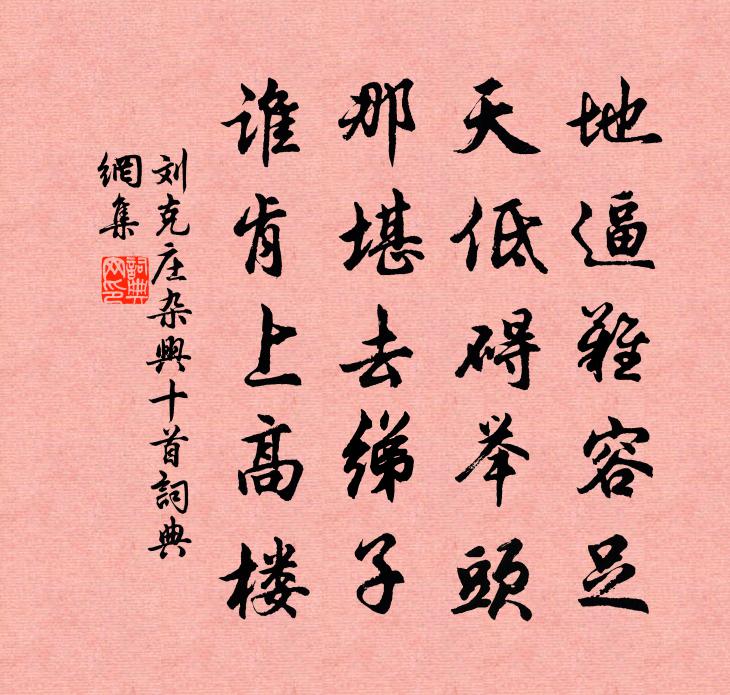 地逼难容足
天低碍举頭
那堪去绨子
谁肯上高楼
刘克庄杂興十首詞典
網集
詞典
网印